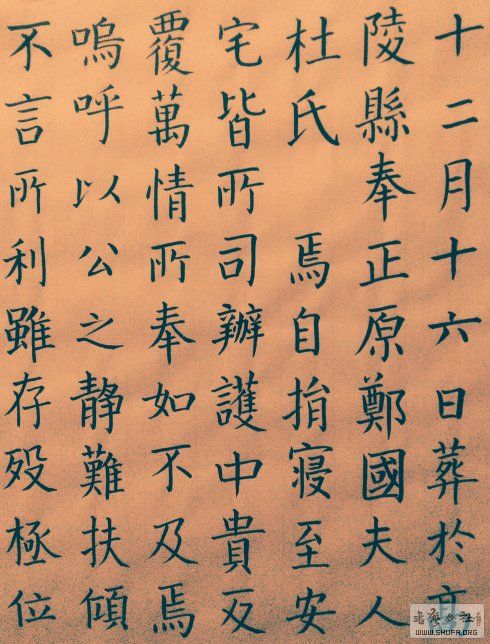 十二月十六日葬於高
陵縣奉正原鄭國夫人
杜氏焉自捐寢至安
宅皆所司辦護中貴反
覆萬情所奉如不及焉
嗚呼以公之靜難扶傾
不言所利雖存歿極位
WWW.SHUFA.ORG